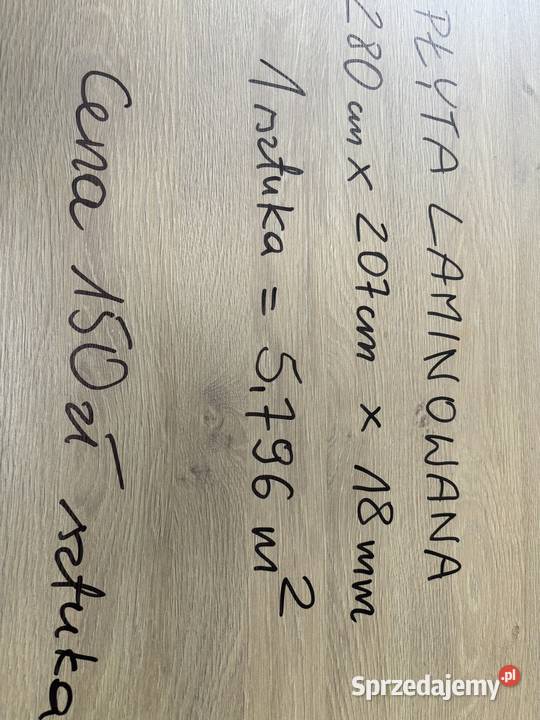 PŁYTA LAMINOWANA
280 cm x 207 cm x 18 mm
1 sztuka = 5,796 m²
Cena 150 zł sztuka
Sprzedajemy.pl